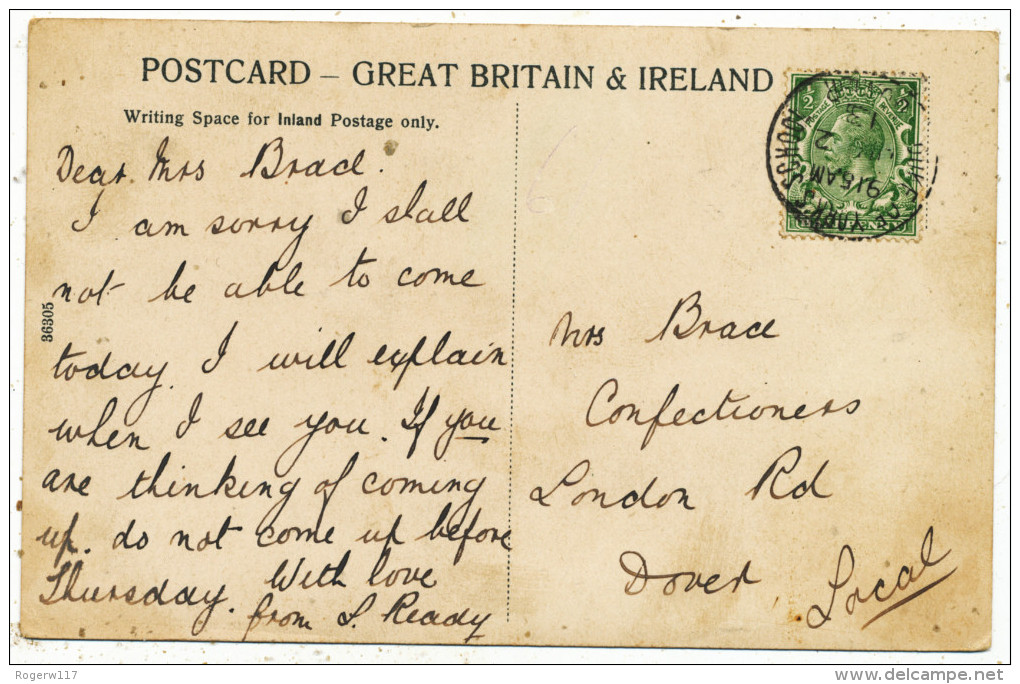 POSTCARD – GREAT BRITAIN & IRELAND
Writing Space for Inland Postage only.
Dear Mrs Brace.
I am sorry I shall
not be able to come
today. I will explain
when I see you. If you
are thinking of coming
up. do not come up before
Thursday. With love
from S. Ready
36305
Mrs Brace
Confectioners
London Rd
Dover
Local
DUKE OF YORK'S SCHOOL
915 AM
2
12
½
½
POSTAGE
REVENUE
Rogerw117
delcampe.net